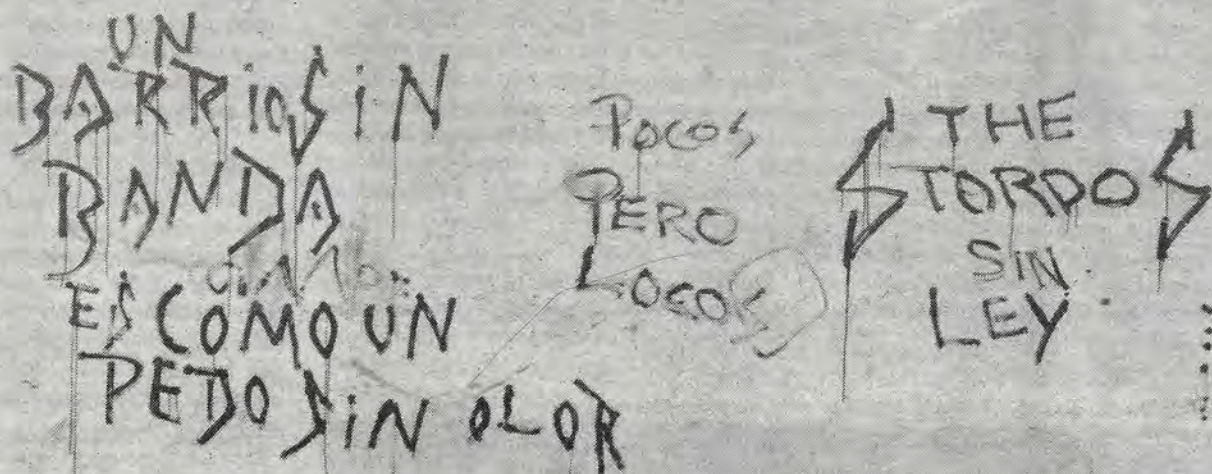 UN
BARRIO SiN
BANDA
ES COMO UN
PEDO SiN OLOR
POCOS
PERO
LOCOS
THE
STORDOS
SIN
LEY